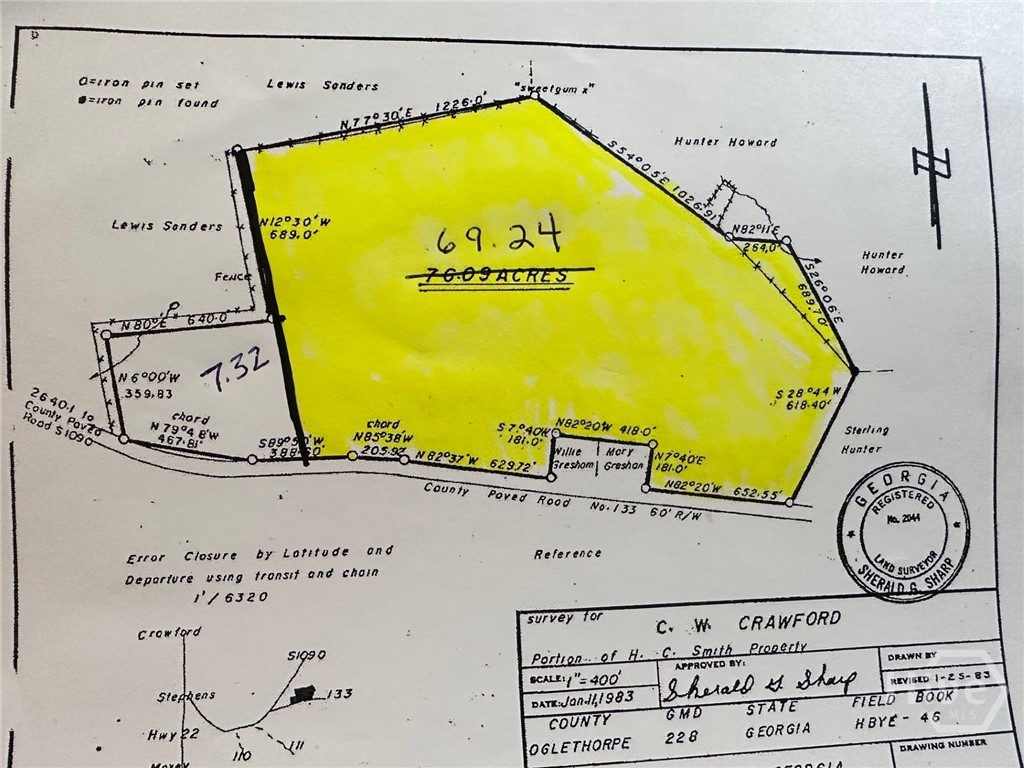 O=iron pin set
●=iron pin found
Lewis Sanders
"sweetgum x"
N77°30'E 1226.0'
Hunter Howard
S54°05'E 1026.91
Lewis Sanders
N12°30'W
689.0'
69.24
76.09 ACRES
N82°11'E
264.0'
Hunter
Howard
S26°06'E
689.70'
Fence
N 80°E 640.0'
7.32
N 6°00'W
359.83
S 28°44 W
618.40'
2640.1 to
County Paved
Road S1090
chord
N 79°48'W
467.81'
S89°50'W
388.60'
chord
N85°38W
205.92'
N82°37'W 629.72'
S 7°40W
181.0'
N82°20W 418.0'
Willie
Gresham
Mary
Gresham
N7°40'E
181.0'
N82°20'W 652.55'
Sterling
Hunter
County Paved Road No. 133 60' R/W
GEORGIA
REGISTERED
No. 2044
LAND SURVEYOR
SHERALD G. SHARP
Error Closure by Latitude and
Departure using transit and chain
1'/6320
Reference
Crawford
S1090
Stephens
133
Hwy 22
110
111
Maxey
survey for C. W. CRAWFORD
Portion of H. C. Smith Property
SCALE: 1"=400'
APPROVED BY:
DRAWN BY
DATE: Jan.11,1983
Sherald G. Sharp
REVISED 1-25-83
COUNTY GMD STATE FIELD BOOK
OGLETHORPE 228 GEORGIA HBYE-46
DRAWING NUMBER
GEORGIA
MLS